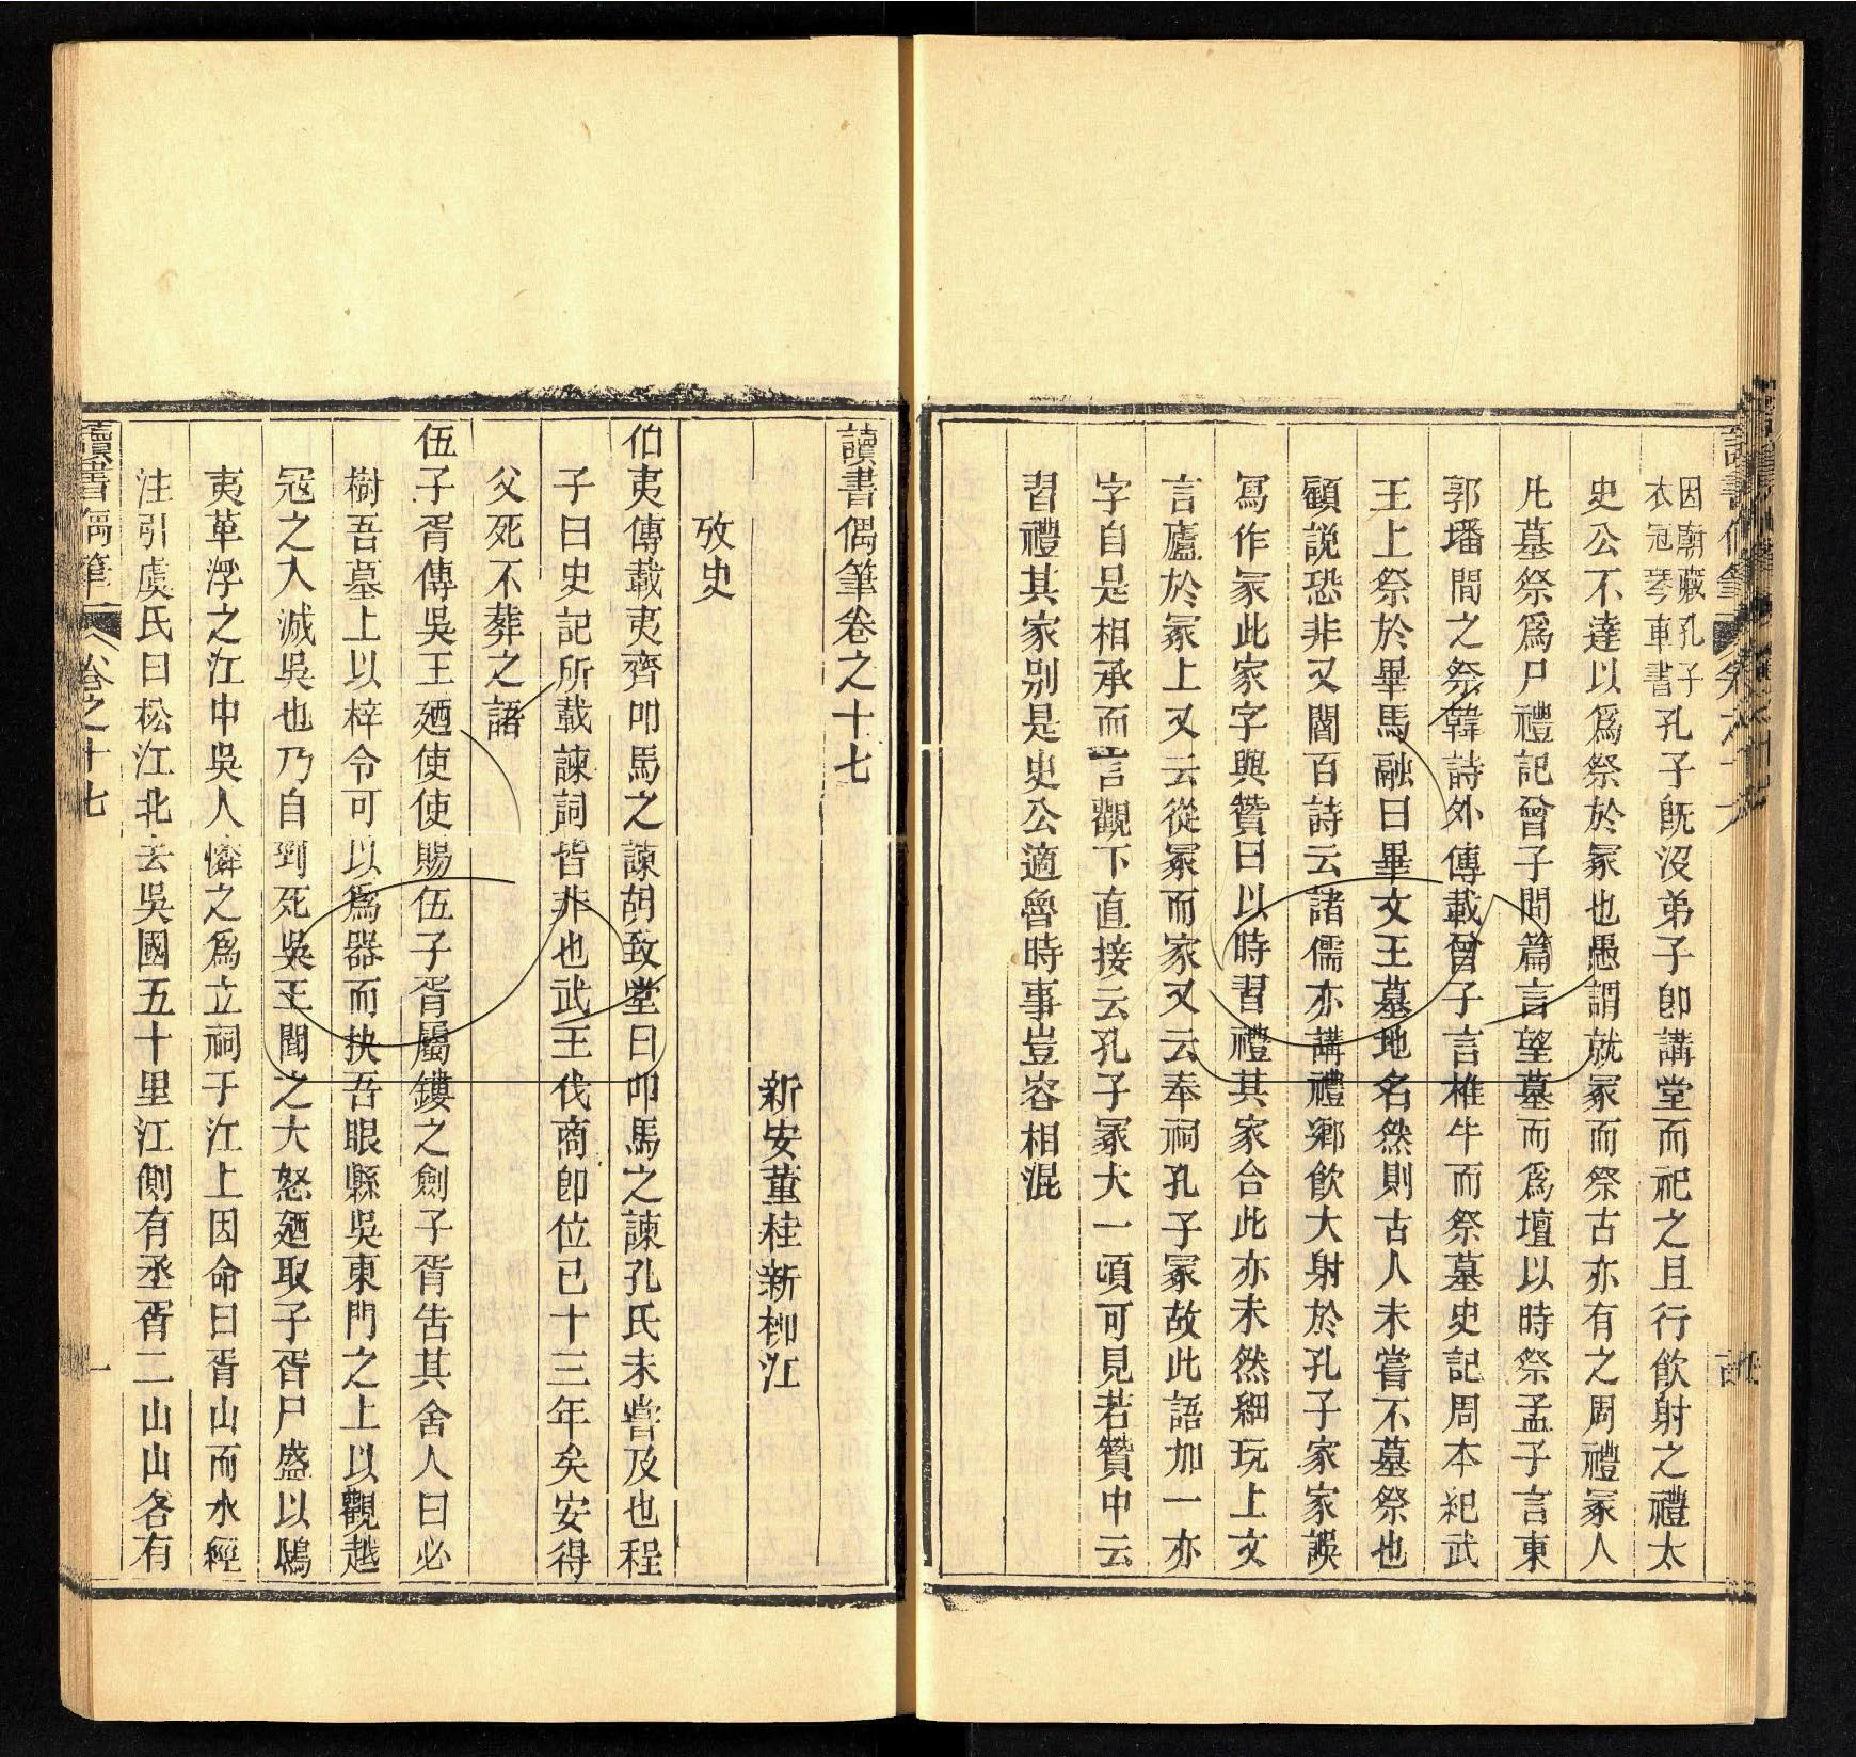 因廟藏孔子
衣冠琴車書孔子旣沒弟子卽講堂而祀之且行飮射之禮太
史公不達以爲祭於冢也愚謂就冢而祭古亦有之周禮冢人
凡墓祭爲尸禮記曾子問篇言望墓而爲壇以時祭孟子言東
郭墦間之祭韓詩外傳載曾子言椎牛而祭墓史記周本紀武
王上祭於畢馬融曰畢文王墓地名然則古人未嘗不墓祭也
顧說恐非又閻百詩云諸儒亦講禮鄉飮大射於孔子家家誤
寫作冢此家字與贊曰以時習禮其家合此亦未然細玩上文
言廬於冢上又云從冢而家又云奉祠孔子冢故此語加一亦
字自是相承而言觀下直接云孔子冢大一頃可見若贊中云
習禮其家別是史公適魯時事豈容相混
讀書偶筆卷之十七
新安董桂新柳江
攷史
伯夷傳載夷齊叩馬之諫胡致堂曰叩馬之諫孔氏未嘗及也程
子曰史記所載諫詞皆非也武王伐商卽位已十三年矣安得
父死不葬之語
伍子胥傳吳王廼使使賜伍子胥屬鏤之劍子胥告其舍人曰必
樹吾墓上以梓令可以爲器而抉吾眼縣吳東門之上以觀越
寇之入滅吳也乃自剄死吳王聞之大怒廼取子胥尸盛以鴟
夷革浮之江中吳人憐之爲立祠于江上因命曰胥山而水經
注引虞氏曰松江北去吳國五十里江側有丞胥二山山各有
讀書偶筆 卷之十七 一